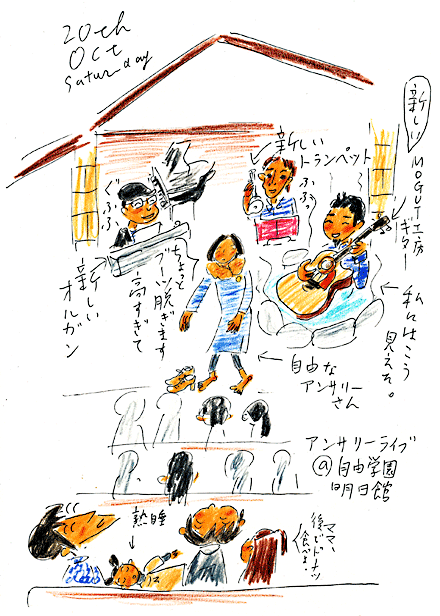 20th
Oct
Saturday
新しい
MOGUT工房
ギター
新しい
トランペット
ふふっ
ぐふふ
新しい
オルガン
ちょっと
ブーツ脱ぎます
高すぎて
私にはこう
見えた。
自由な
アンサリー
さん
アンサリーライブ
@自由学園
明日館
熟睡
ママ、
後でドーナツ
食べよ！